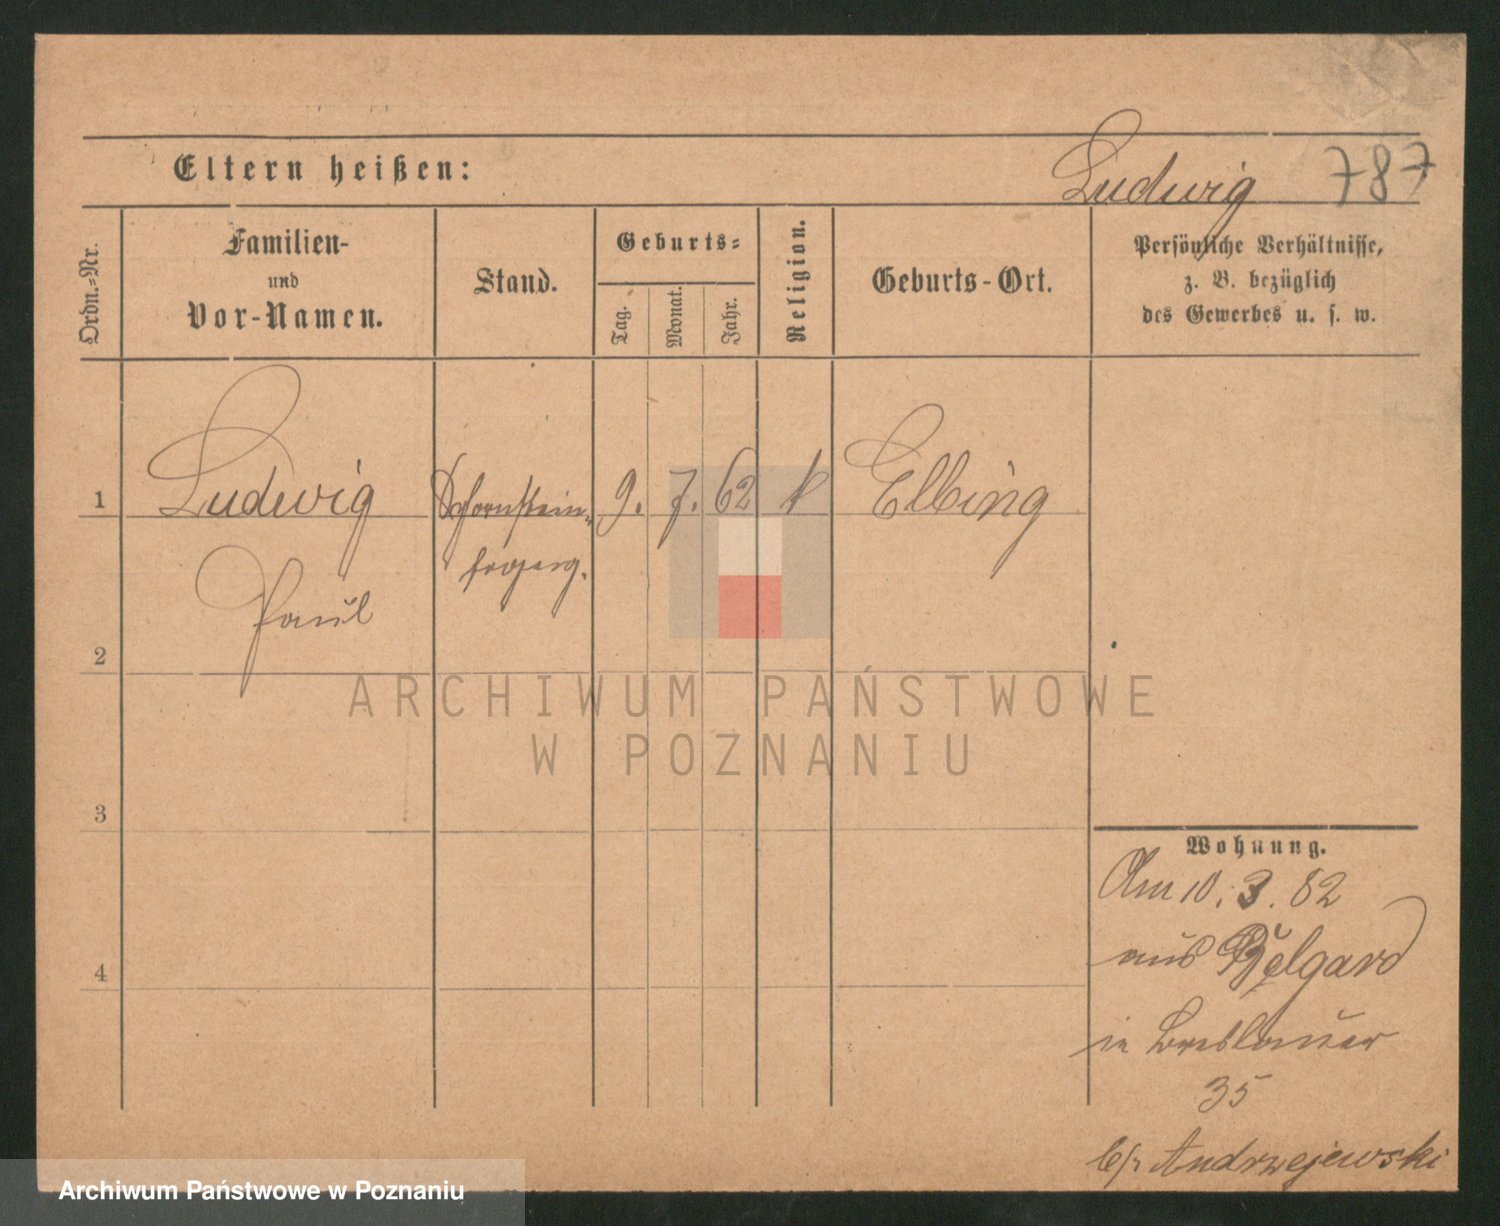 Eltern heißen:
Ludwig 787
Ordn.-Nr.
Familien-
und
Vor-Namen.
Stand.
Geburts-
Tag.
Monat.
Jahr.
Religion.
Geburts-Ort.
Persönliche Verhältnisse,
z. B. bezüglich
des Gewerbes u. s. w.
1 Ludwig Schornstein- 9. 7. 62 k Elbing
fegerg.
Paul
2
3
4
Wohnung.
Am 10. 3. 82
aus Belgard
in Breslauer
35
b/ Andrzejewski
ARCHIWUM PAŃSTWOWE
W POZNANIU
Archiwum Państwowe w Poznaniu